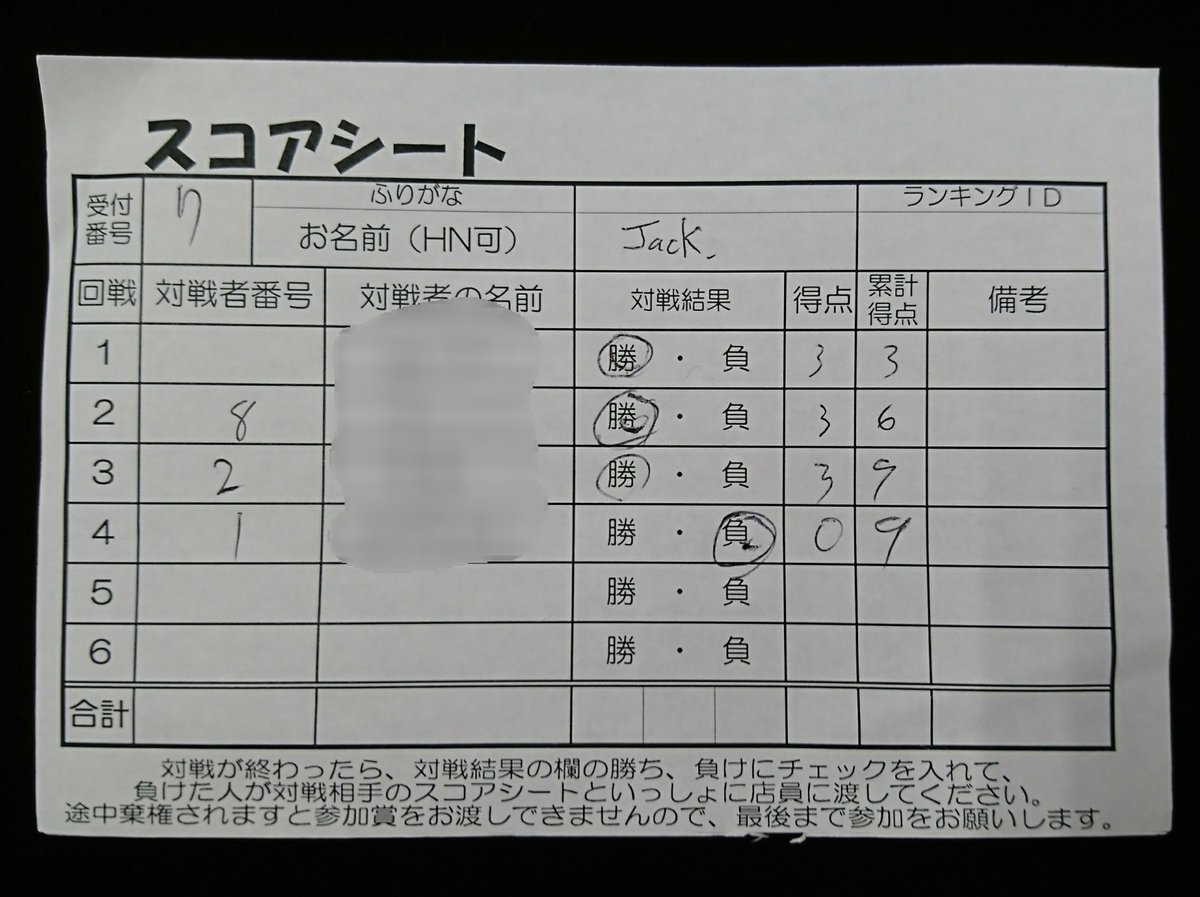 スコアシート
受付番号 7 ふりがな ランキングID
お名前(HN可) Jack.
回戦 対戦者番号 対戦者の名前 対戦結果 得点 累計得点 備考
1 勝・負 3 3
2 8 勝・負 3 6
3 2 勝・負 3 9
4 1 勝・負 0 9
5 勝・負
6 勝・負
合計
対戦が終わったら、対戦結果の欄の勝ち、負けにチェックを入れて、
負けた人が対戦相手のスコアシートといっしょに店員に渡してください。
途中棄権されますと参加賞をお渡しできませんので、最後まで参加をお願いします。